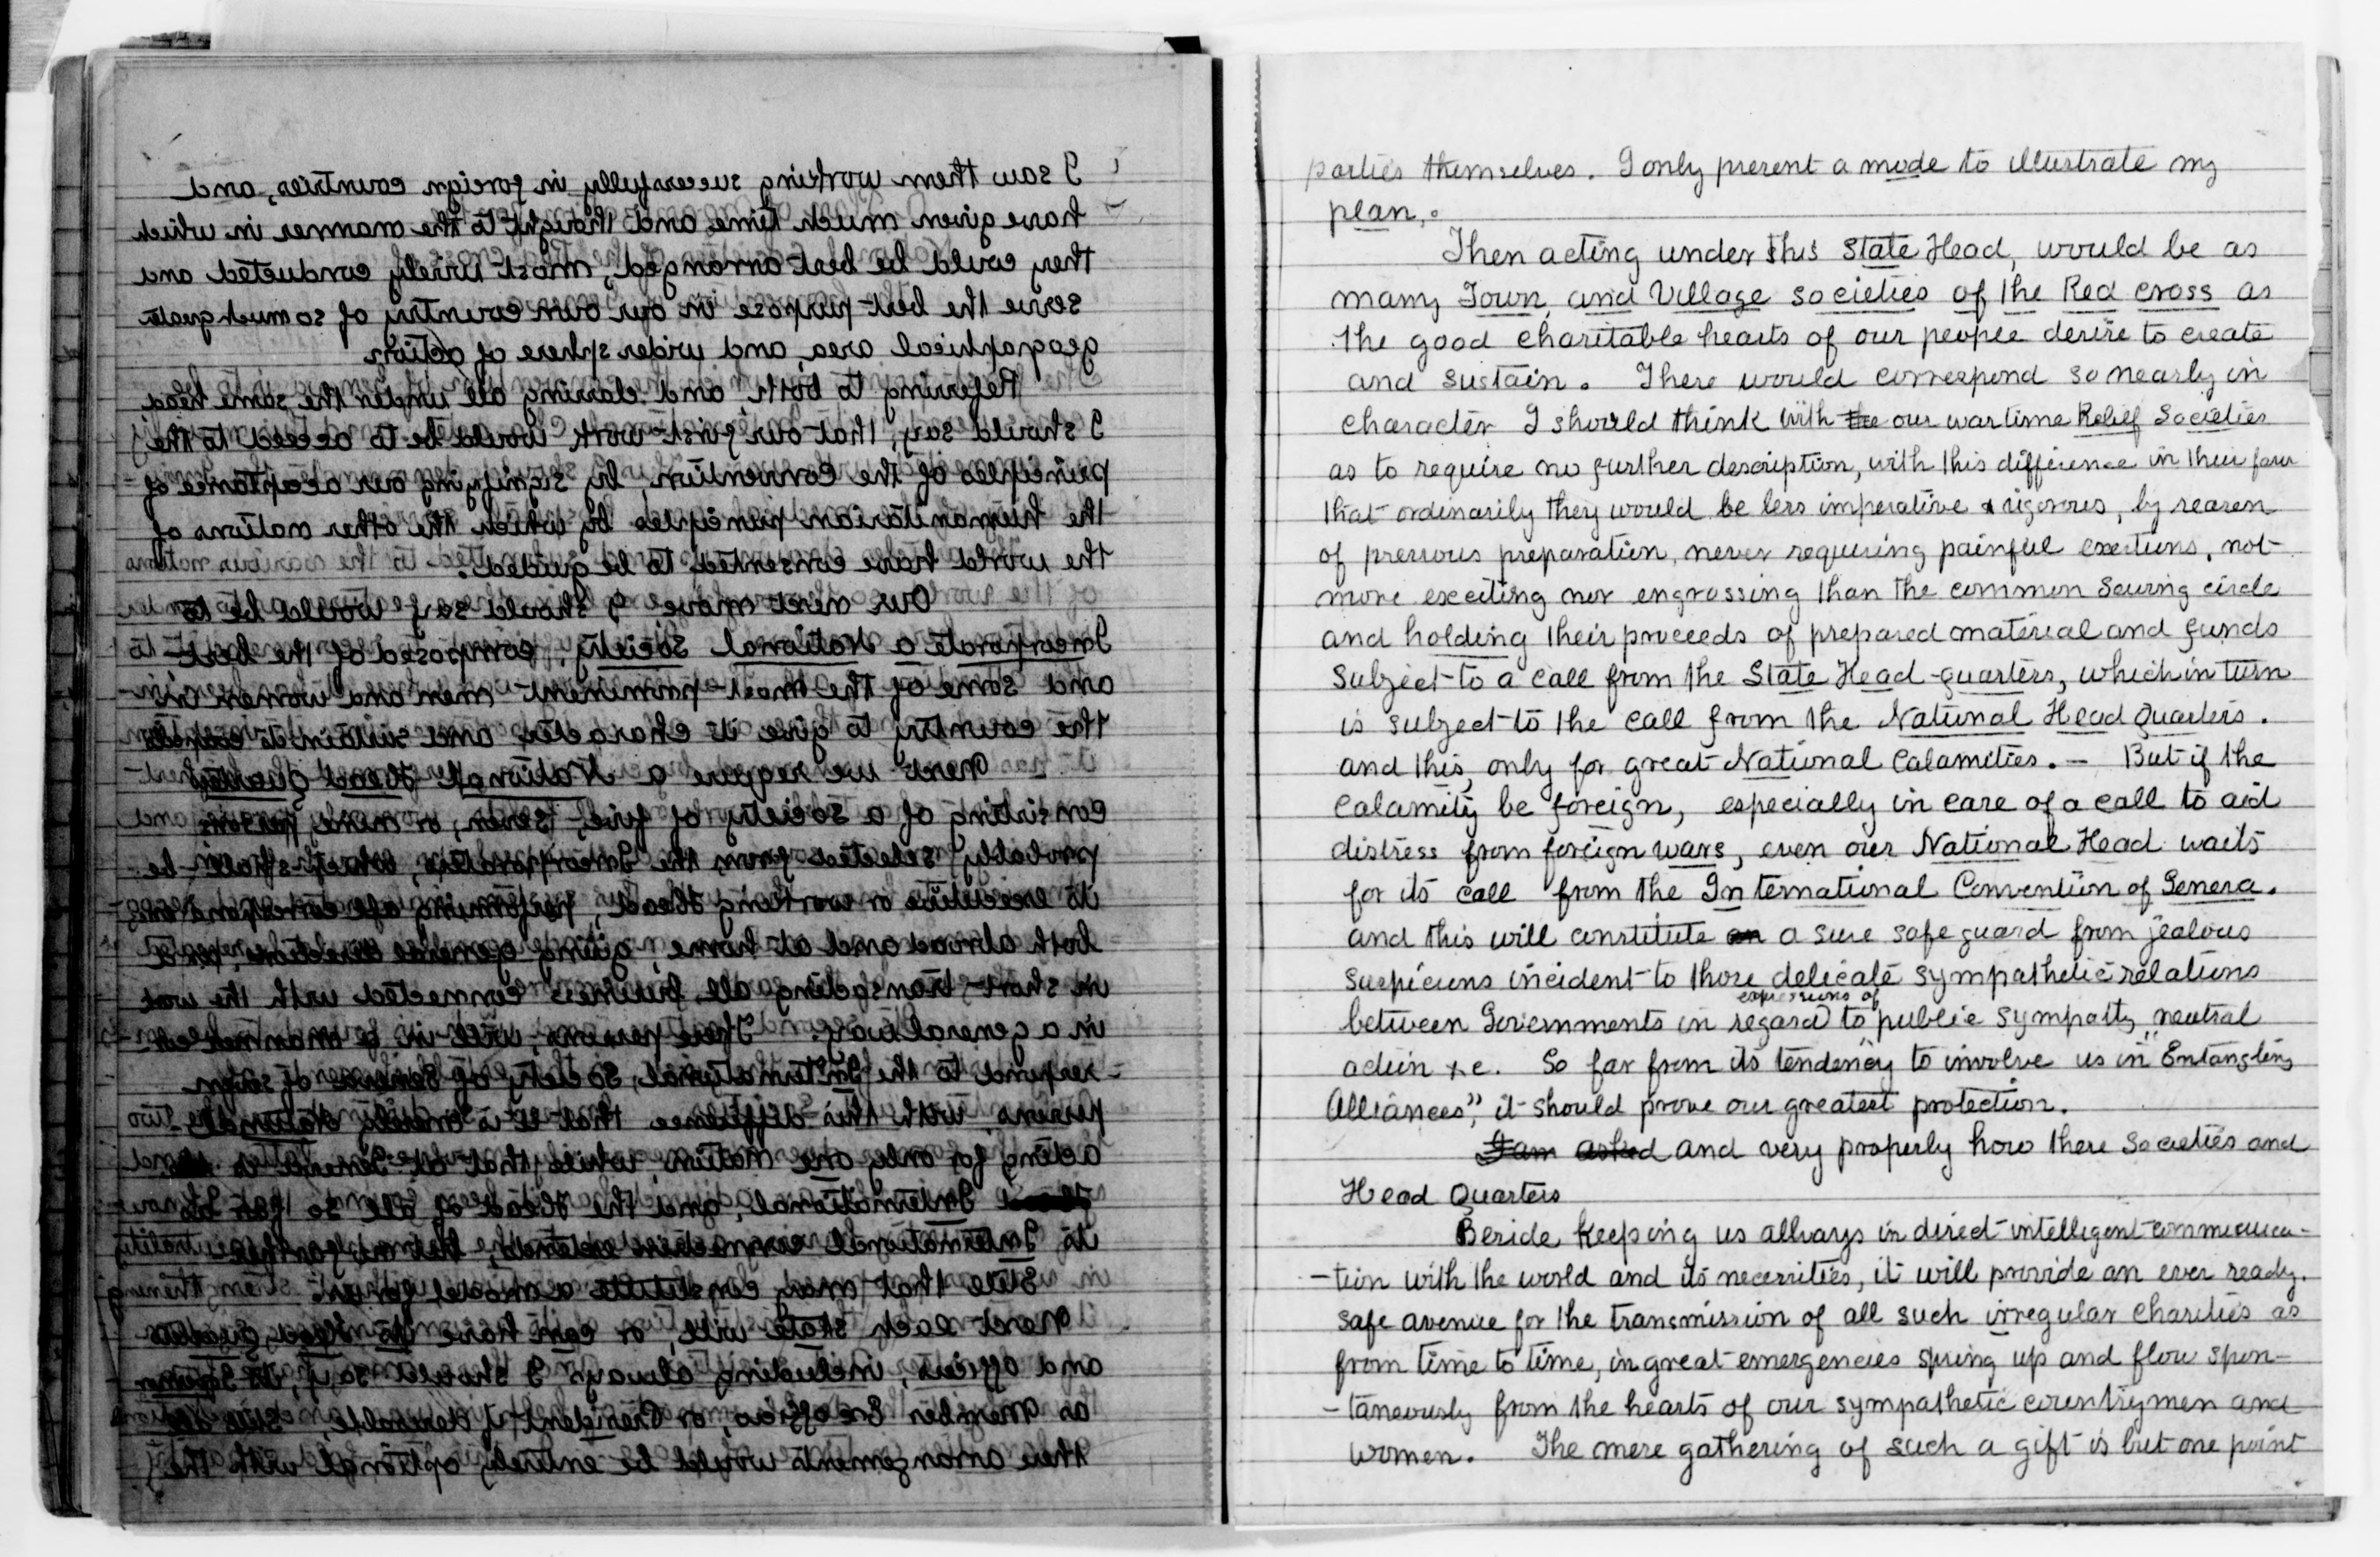 I saw them working successfully in foreign countries, and
have given much time and thought to the manner in which
they could be best arranged, most wisely conducted and
serve the best purpose in our own country of so much greater
geographical area, and wider sphere of action
Refering to both, and classing all under the same head
I should say, that our first work would be to acceed to the
principles of the Convention, by signifying our acceptance of
the humanitarian principles by which the other nations of
the world have consented to be guided.
Our next move I should say would be to
Incorporate a National Society, composed of the best
and some of the most prominent men and women in
the country to give it character and sustain its
Next we require a National Head Quarters
consisting of a society of five, seven, or nine persons
probably selected from the Incorporators, which shall be
its executive or working Head, performing all correspondence
both abroad and at home, giving general direction, and
in short transacting all business connected with the work
in a general way. These persons, will in a manner cor-
-respond to the International Society of Geneva of seven
persons, with this difference that it is only National
acting for only one nation, while that at Geneva is
International, and the Head of all so far as
its International connection extends, but no farther
Still that may constitute a model for us.
Next each state will, or can have its Head Quarters
and officers, including always I should say, its Governor
as member Ex officio, or President if desirable, still all
these arrangements would be entirely optional with the
parties themselves. I only present a mode to illustrate my
plan.
Then acting under this State Head, would be as
many Town and Village societies of the Red Cross as
the good charitable hearts of our people desire to create
and sustain. These would correspond so nearly in
character I should think with the our war time Relief Societies
as to require no further description, with this difference in their favor
that ordinarily they would be less imperative & rigorous, by reason
of previous preparation, never requiring painful exertions, not
more exciting nor engrossing than the common sewing circle
and holding their proceeds of prepared material and funds
subject to a call from the State Head-quarters, which in turn
is subject to the call from the National Head Quarters.
and this, only for great National Calamities. – But if the
calamity be foreign, especially in case of a call to aid
distress from foreign wars, even our National Head waits
for its call from the International Convention of Geneva.
and this will constitute an a sure safe guard from jealous
suspicions incident to those delicate sympathetic relations
between Governments in regard to expressions of public sympathy, neutral
action &c. So far from its tendency to involve us in "Entangling
Alliances", it should prove our greatest protection.
I am asked and very properly how these Societies and
Head Quarters
Beside keeping us allways in direct intelligent communica-
-tion with the world and its necessities, it will provide an ever ready.
safe avenue for the transmission of all such irregular charities as
from time to time, in great emergencies spring up and flow spon-
-taneously from the hearts of our sympathetic countrymen and
women. The mere gathering of such a gift is but one point